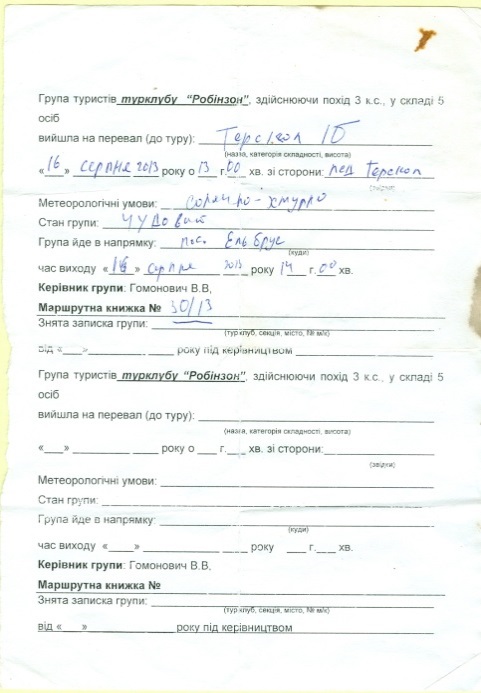 Група туристів турклубу “Робінзон”, здійснюючи похід 3 к.с., у складі 5
осіб
вийшла на перевал (до туру): Терскол 1Б
(назва, категорія складності, висота)
«16» серпня 2013 року о 13 г.00 хв. зі сторони: лед Терскол
(звідки)
Метеорологічні умови: солнечно-хмурно
Стан групи: чудовий
Група йде в напрямку: пос. Ельбрус
(куди)
час виходу «16» серпня 2013 року 14 г.00 хв.
Керівник групи: Гомонович В.В,
Маршрутна книжка № 30/13
Знята записка групи:
(турклуб, секція, місто, № м/к)
від «___» року під керівництвом
Група туристів турклубу “Робінзон”, здійснюючи похід 3 к.с., у складі 5
осіб
вийшла на перевал (до туру):
(назва, категорія складності, висота)
«___» року о ___ г.___ хв. зі сторони:
(звідки)
Метеорологічні умови:
Стан групи:
Група йде в напрямку:
(куди)
час виходу «____» року ___ г.___ хв.
Керівник групи: Гомонович В.В,
Маршрутна книжка №
Знята записка групи:
(турклуб, секція, місто, № м/к)
від «___» року під керівництвом